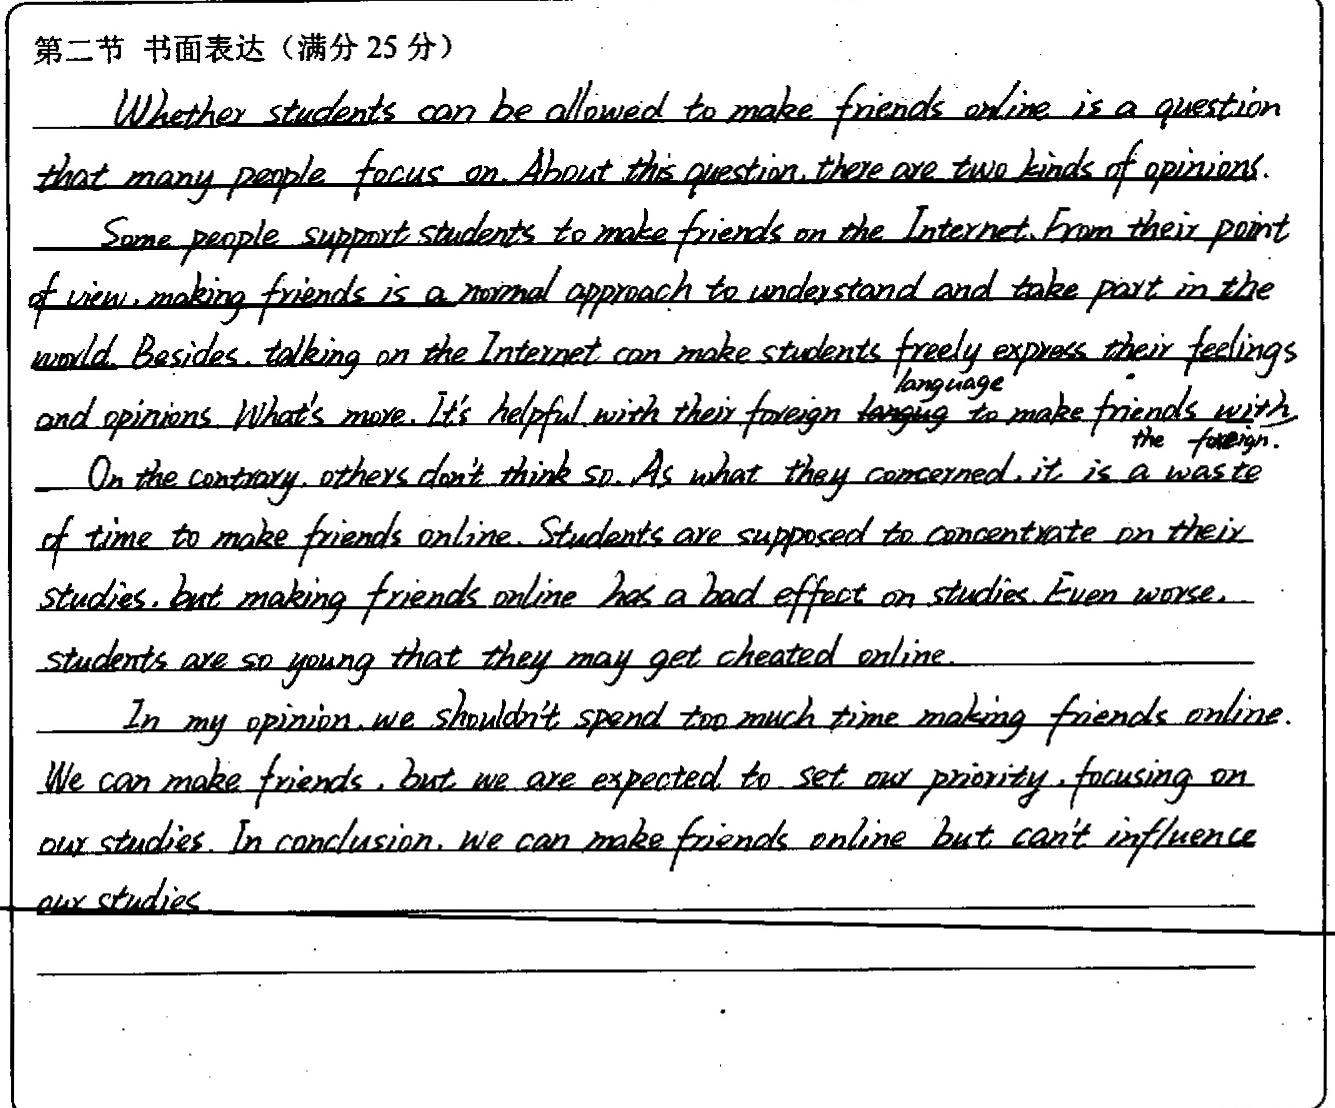 第二节 书面表达（满分 25 分）
Whether students can be allowed to make friends online is a question
that many people focus on. About this question, there are two kinds of opinions.
Some people support students to make friends on the Internet. From their point
of view, making friends is a normal approach to understand and take part in the
world. Besides, talking on the Internet can make students freely express their feelings
language
and opinions. What's more, It's helpful with their foreign langug to make friends with
the foreign.
On the contrary, others don't think so. As what they concerned, it is a waste
of time to make friends online. Students are supposed to concentrate on their
studies, but making friends online has a bad effect on studies. Even worse,
students are so young that they may get cheated online.
In my opinion, we shouldn't spend too much time making friends online.
We can make friends, but we are expected to set our priority, focusing on
our studies. In conclusion, we can make friends online but can't influence
our studies